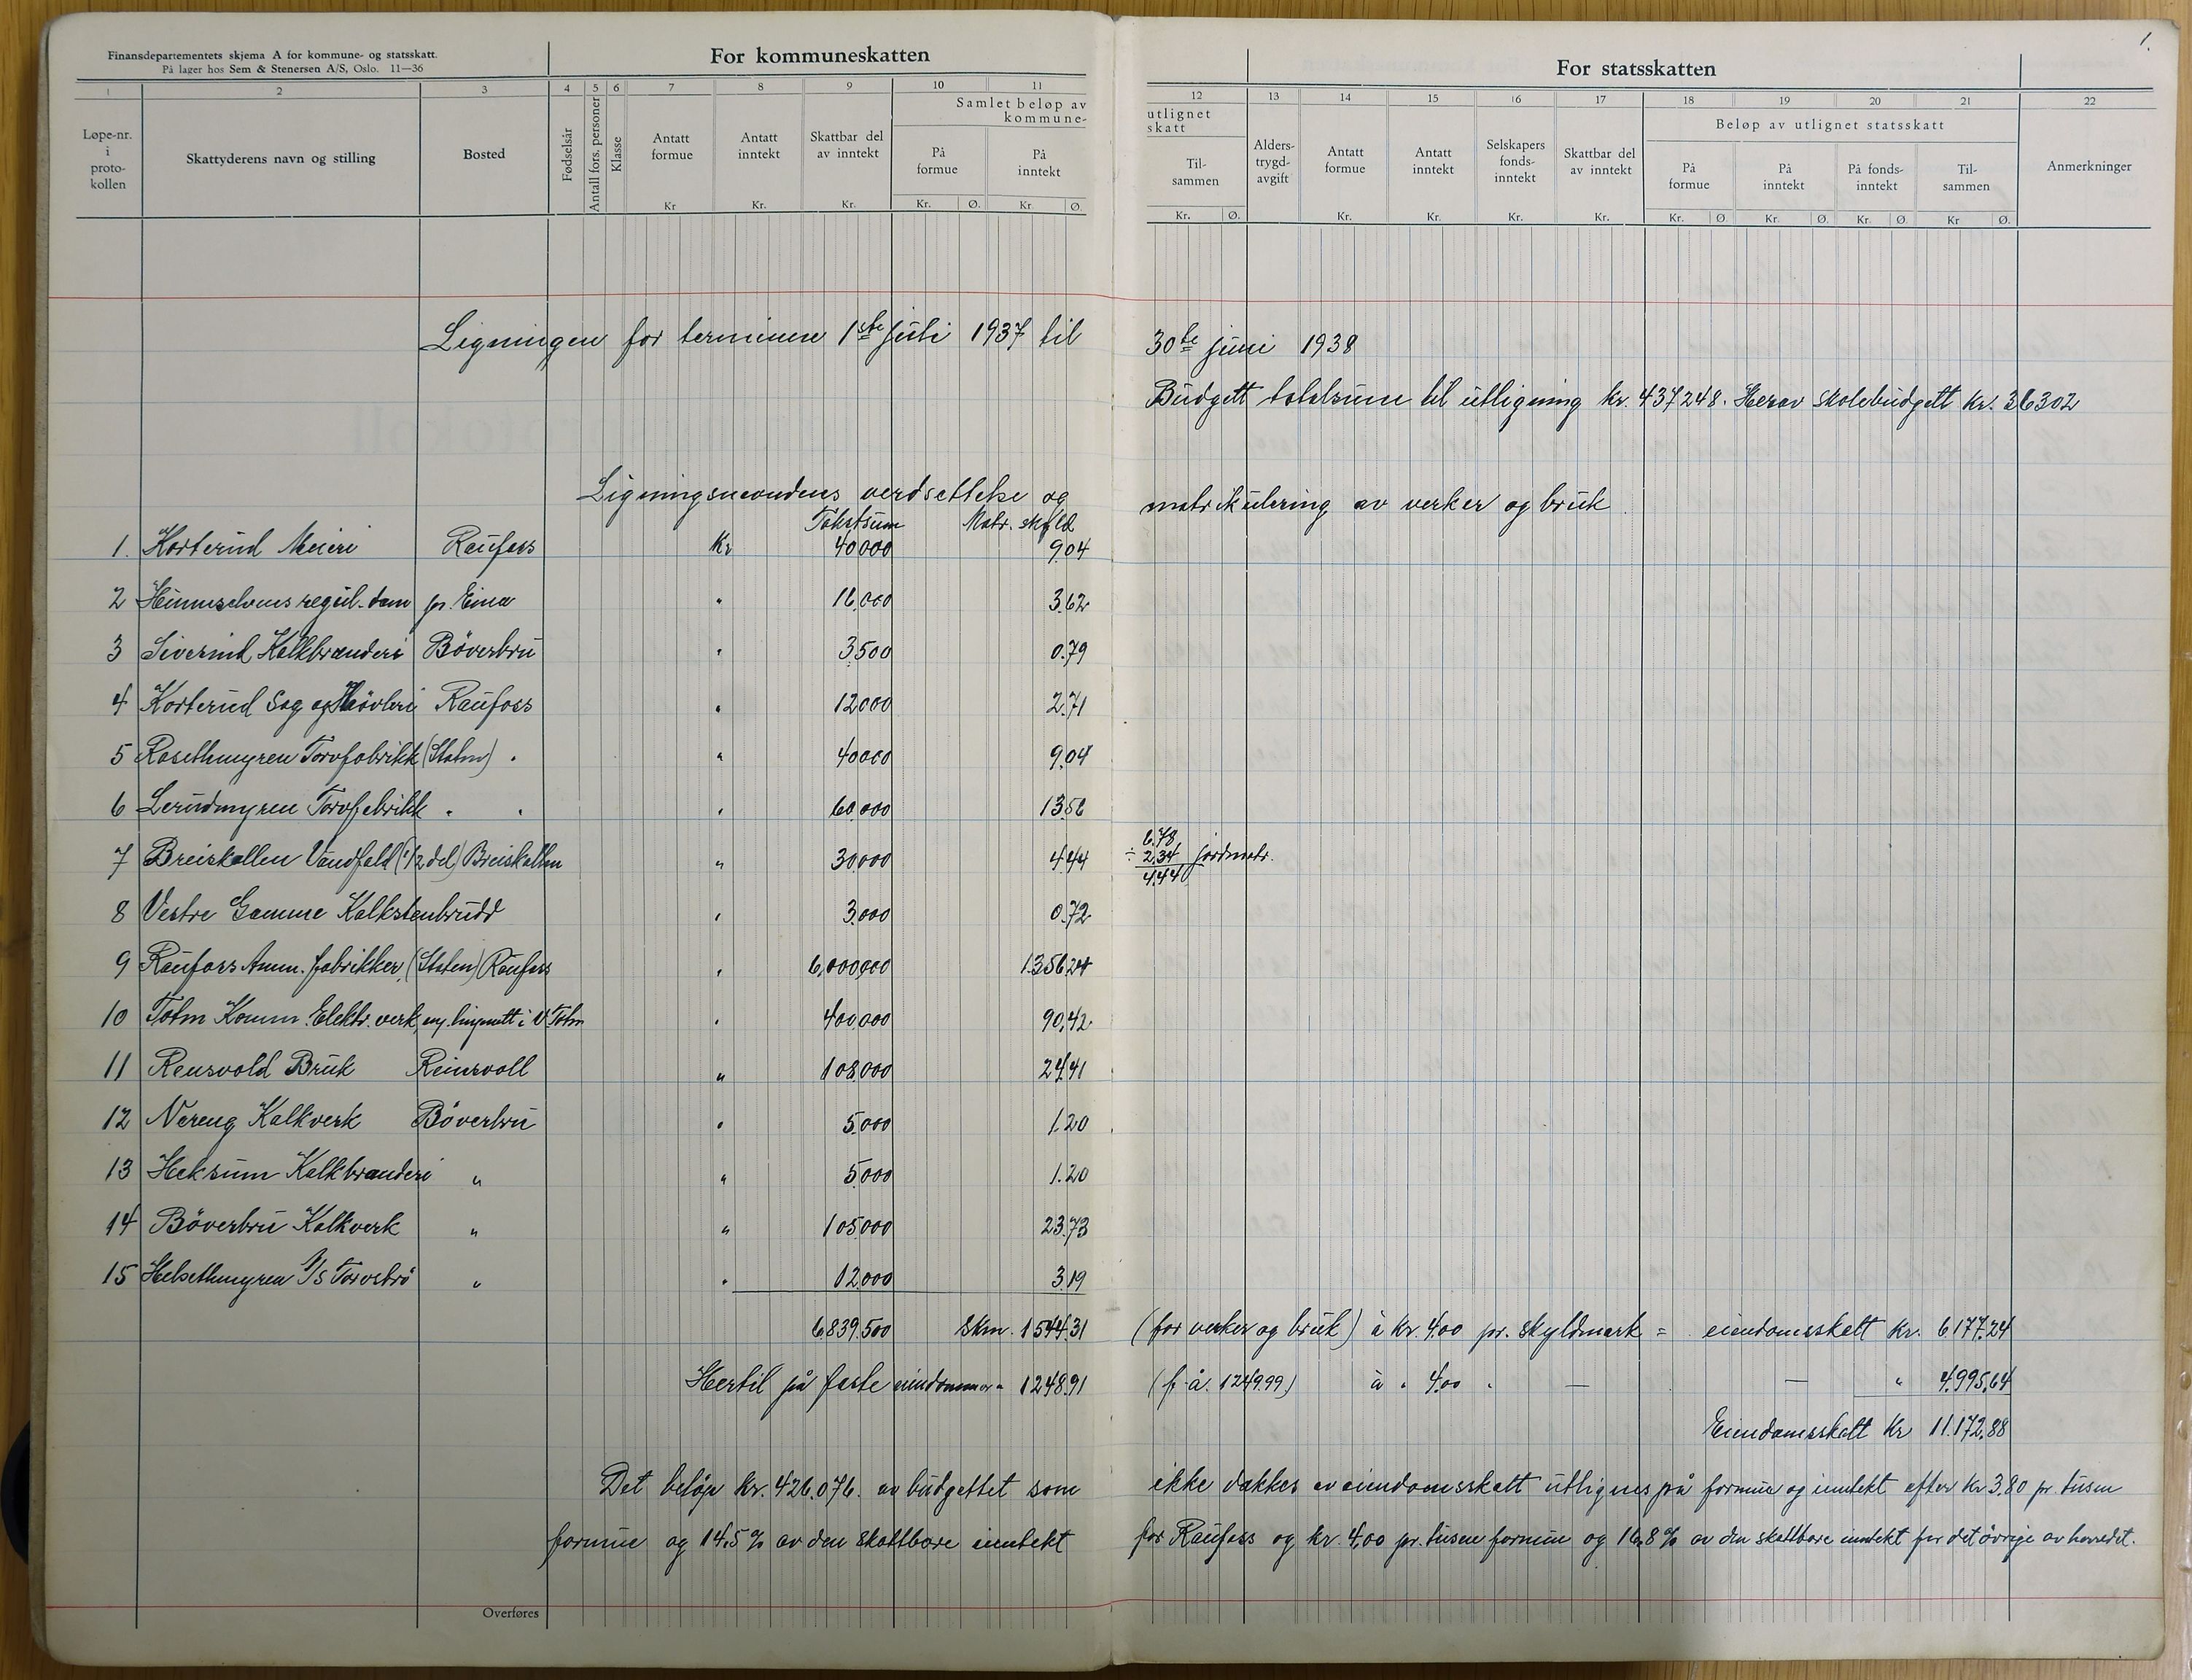 1.
Finansdepartementets skjema A for kommune- og statsskatt.
På lager hos Sem & Stenersen A/S, Oslo. 11—36
For kommuneskatten
For statsskatten
1 2 3 4 5 6 7 8 9 10 11 12 13 14 15 16 17 18 19 20 21 22
Løpe-nr. i proto-kollen
Skattyderens navn og stilling
Bosted
Fødselsår
Antall fors. personer
Klasse
Antatt formue Kr
Antatt inntekt Kr.
Skattbar del av inntekt Kr.
Samlet beløp av kommune-
På formue Kr. Ø.
På inntekt Kr. Ø.
utlignet skatt
Til-sammen Kr. Ø.
Alders-trygd-avgift
Antatt formue Kr.
Antatt inntekt Kr.
Selskapers fonds-inntekt Kr.
Skattbar del av inntekt Kr.
Beløp av utlignet statsskatt
På formue Kr. Ø.
På inntekt Kr. Ø.
På fonds-inntekt Kr. Ø.
Til-sammen Kr Ø.
Anmerkninger
Ligningen for terminen 1ste juli 1937 til 30te juni 1938
Budgett totalsum til utligning kr. 437248. Herav skolebudgett kr. 36302
Ligningsnevndens verdsettelse og matrikulering av verker og bruk
Takstsum Matr. skyld
1. Korterud Meieri Raufoss Kr 40000 9.04
2 Skjelbreid regul. dam pr. Eina " 16.000 3.62
3 Siverud Kalkbrenderi Böverbru " 3.500 0.79
4 Korterud Sag og Høvleri Raufoss " 12000 2.71
5 Rosethmyren Torvfabrikk (Staten) " " 40000 9.04
6 Lerudmyren Torvfabrikk " " " 60.000 13.56
7 Breiskallen Vandfald (1/2 del) Breiskallen " 30000 4.44 6.78
÷ 2.34 jordmatr.
4.44
8 Vestre Gamme Kalkstenbrudd " 3.000 0.72
9 Raufoss Amm. fabrikker, (Staten) Raufoss " 6.000.000 1356.24
10 Totn Komm. Elektr. verk, i V. Totn " 400.000 90.42
11 Rensvold Bruk Reinsvoll " 108.000 24.41
12 Nereng Kalkverk Böverbru " 5.000 1.20
13 Heksum Kalkbranderi " " 5.000 1.20
14 Böverbru Kalkverk " " 105.000 23.73
15 Helsethmyren A/S Torvströ " " 12.000 3.19
6.839.500 Skm. 1544.31 (for verker og bruk) à kr. 4.00 pr. skyldmark = eiendomsskatt kr. 6.177.24
Hertil på faste eiendommer " 1248.91 (f. å. 1249.99) à " 4.00 " — — " 4.995.64
Eiendomsskatt Kr 11.172.88
Det beløp kr. 426.076. av budgettet som ikke dækkes av eiendomsskatt utlignes på formue og inntekt efter kr 3.80 pr. tusen
formue og 14.5 % av den skattbare inntekt for Raufoss og kr. 4.00 pr. tusen formue og 16.8 % av den skattbare inntekt for det øvrige av herredet.
Overføres